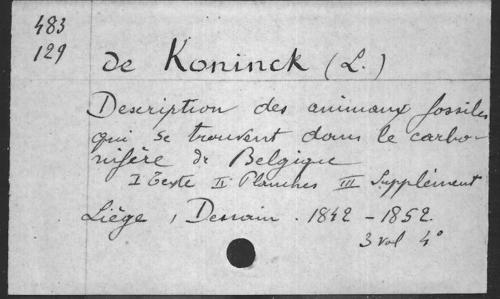 483
129
de Koninck (L.)
Description des animaux fossiles
qui se trouvent dans le carbo-
nifère de Belgique
I Texte II Planches III Supplément
Liège, Dessain. 1842 - 1852.
3 vol 4°